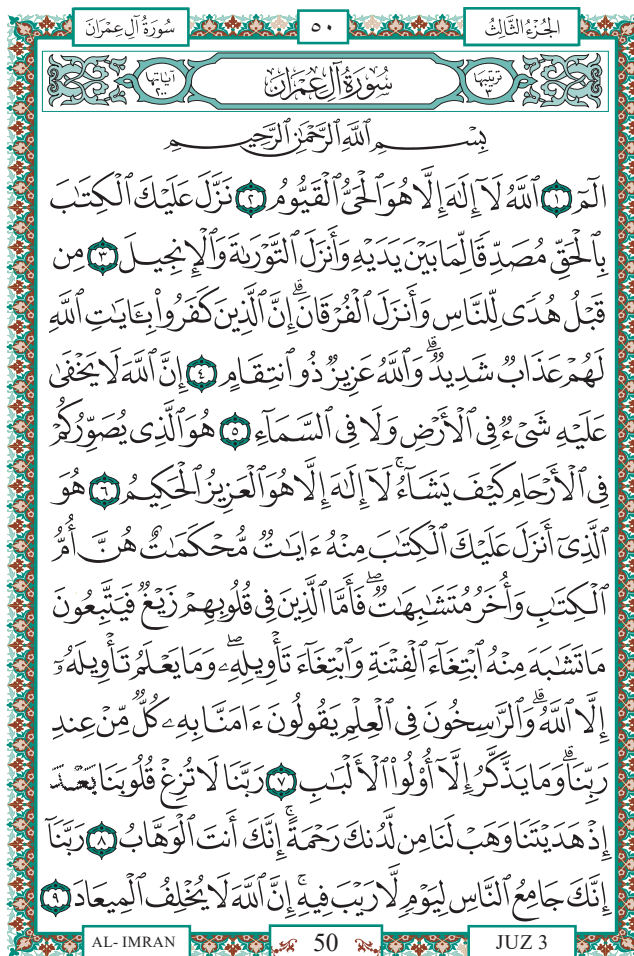 سُورَةُ آلِ عِمْرَانَ ٥٠ الجُزْءُ الثَّالِثُ
آيَاتُهَا ٢٠٠ سُورَةُ آلِ عِمْرَانَ تَرْتِيبُهَا ٣
بِسْمِ ٱللَّهِ ٱلرَّحْمَٰنِ ٱلرَّحِيمِ
الٓمٓ ١ ٱللَّهُ لَآ إِلَٰهَ إِلَّا هُوَ ٱلْحَىُّ ٱلْقَيُّومُ ٢ نَزَّلَ عَلَيْكَ ٱلْكِتَٰبَ
بِٱلْحَقِّ مُصَدِّقًا لِّمَا بَيْنَ يَدَيْهِ وَأَنزَلَ ٱلتَّوْرَىٰةَ وَٱلْإِنجِيلَ ٣ مِن
قَبْلُ هُدًى لِّلنَّاسِ وَأَنزَلَ ٱلْفُرْقَانَ ۗ إِنَّ ٱلَّذِينَ كَفَرُوا۟ بِـَٔايَٰتِ ٱللَّهِ
لَهُمْ عَذَابٌ شَدِيدٌ ۗ وَٱللَّهُ عَزِيزٌ ذُو ٱنتِقَامٍ ٤ إِنَّ ٱللَّهَ لَا يَخْفَىٰ
عَلَيْهِ شَىْءٌ فِى ٱلْأَرْضِ وَلَا فِى ٱلسَّمَآءِ ٥ هُوَ ٱلَّذِى يُصَوِّرُكُمْ
فِى ٱلْأَرْحَامِ كَيْفَ يَشَآءُ ۚ لَآ إِلَٰهَ إِلَّا هُوَ ٱلْعَزِيزُ ٱلْحَكِيمُ ٦ هُوَ
ٱلَّذِىٓ أَنزَلَ عَلَيْكَ ٱلْكِتَٰبَ مِنْهُ ءَايَٰتٌ مُّحْكَمَٰتٌ هُنَّ أُمُّ
ٱلْكِتَٰبِ وَأُخَرُ مُتَشَٰبِهَٰتٌ ۖ فَأَمَّا ٱلَّذِينَ فِى قُلُوبِهِمْ زَيْغٌ فَيَتَّبِعُونَ
مَا تَشَٰبَهَ مِنْهُ ٱبْتِغَآءَ ٱلْفِتْنَةِ وَٱبْتِغَآءَ تَأْوِيلِهِۦ ۖ وَمَا يَعْلَمُ تَأْوِيلَهُۥٓ
إِلَّا ٱللَّهُ ۗ وَٱلرَّٰسِخُونَ فِى ٱلْعِلْمِ يَقُولُونَ ءَامَنَّا بِهِۦ كُلٌّ مِّنْ عِندِ
رَبِّنَا ۗ وَمَا يَذَّكَّرُ إِلَّآ أُو۟لُوا۟ ٱلْأَلْبَٰبِ ٧ رَبَّنَا لَا تُزِغْ قُلُوبَنَا بَعْدَ
إِذْ هَدَيْتَنَا وَهَبْ لَنَا مِن لَّدُنكَ رَحْمَةً ۚ إِنَّكَ أَنتَ ٱلْوَهَّابُ ٨ رَبَّنَآ
إِنَّكَ جَامِعُ ٱلنَّاسِ لِيَوْمٍ لَّا رَيْبَ فِيهِ ۚ إِنَّ ٱللَّهَ لَا يُخْلِفُ ٱلْمِيعَادَ ٩
AL- IMRAN 50 JUZ 3